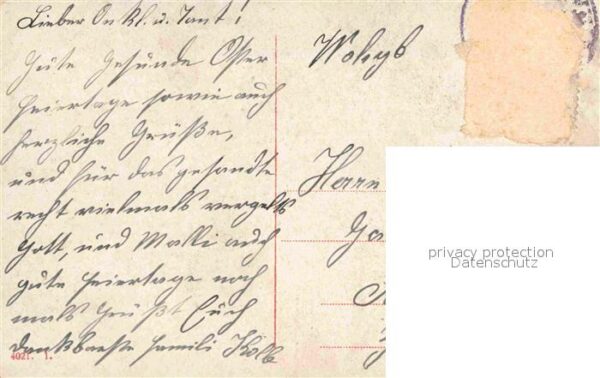 Lieber Onkl. u. Tant!
Gute Gesunde Oster
feiertage sowie auch
herzliche Grüße,
und für das gesandte
recht vielmals vergelts
Gott, und Malli auch
gute feiertage noch
mals Grüßt Euch
dankbarste Famili Kolb
4021. 1.
Wohgb
Herrn
privacy protection
Datenschutz